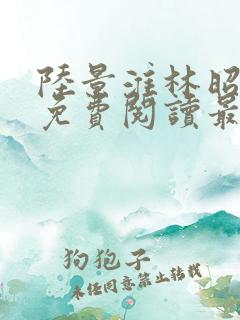 陸景淮林昭
免費閱讀最
狗狍子
未经同意禁止转载